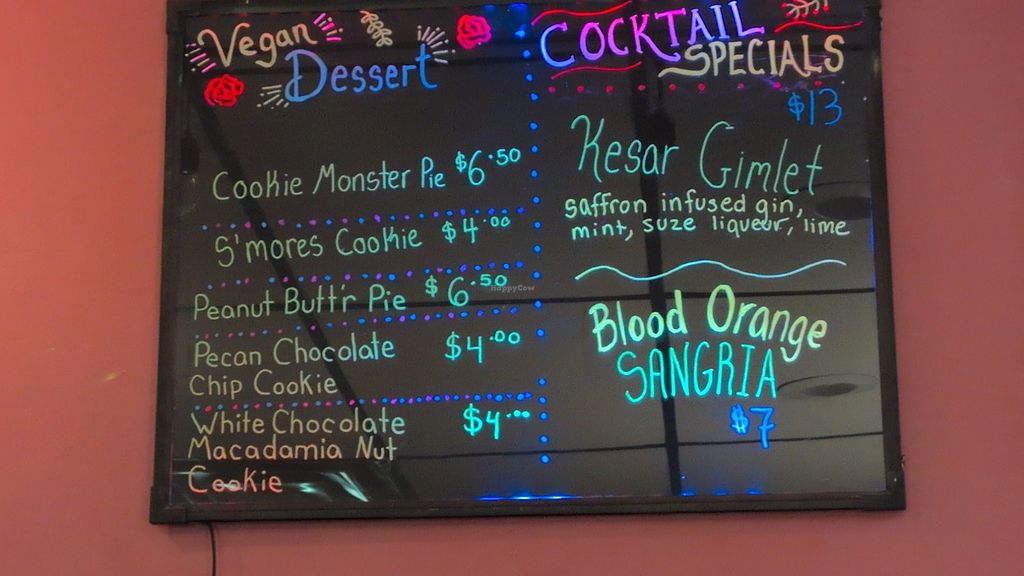 Vegan
Dessert
Cookie Monster Pie $6.50
S'mores Cookie $4.00
Peanut Butt'r Pie $6.50
Pecan Chocolate $4.00
Chip Cookie
White Chocolate $4.00
Macadamia Nut
Cookie
COCKTAIL
SPECIALS
$13
Kesar Gimlet
saffron infused gin,
mint, suze liqueur, lime
Blood Orange
SANGRIA
$7
HappyCow